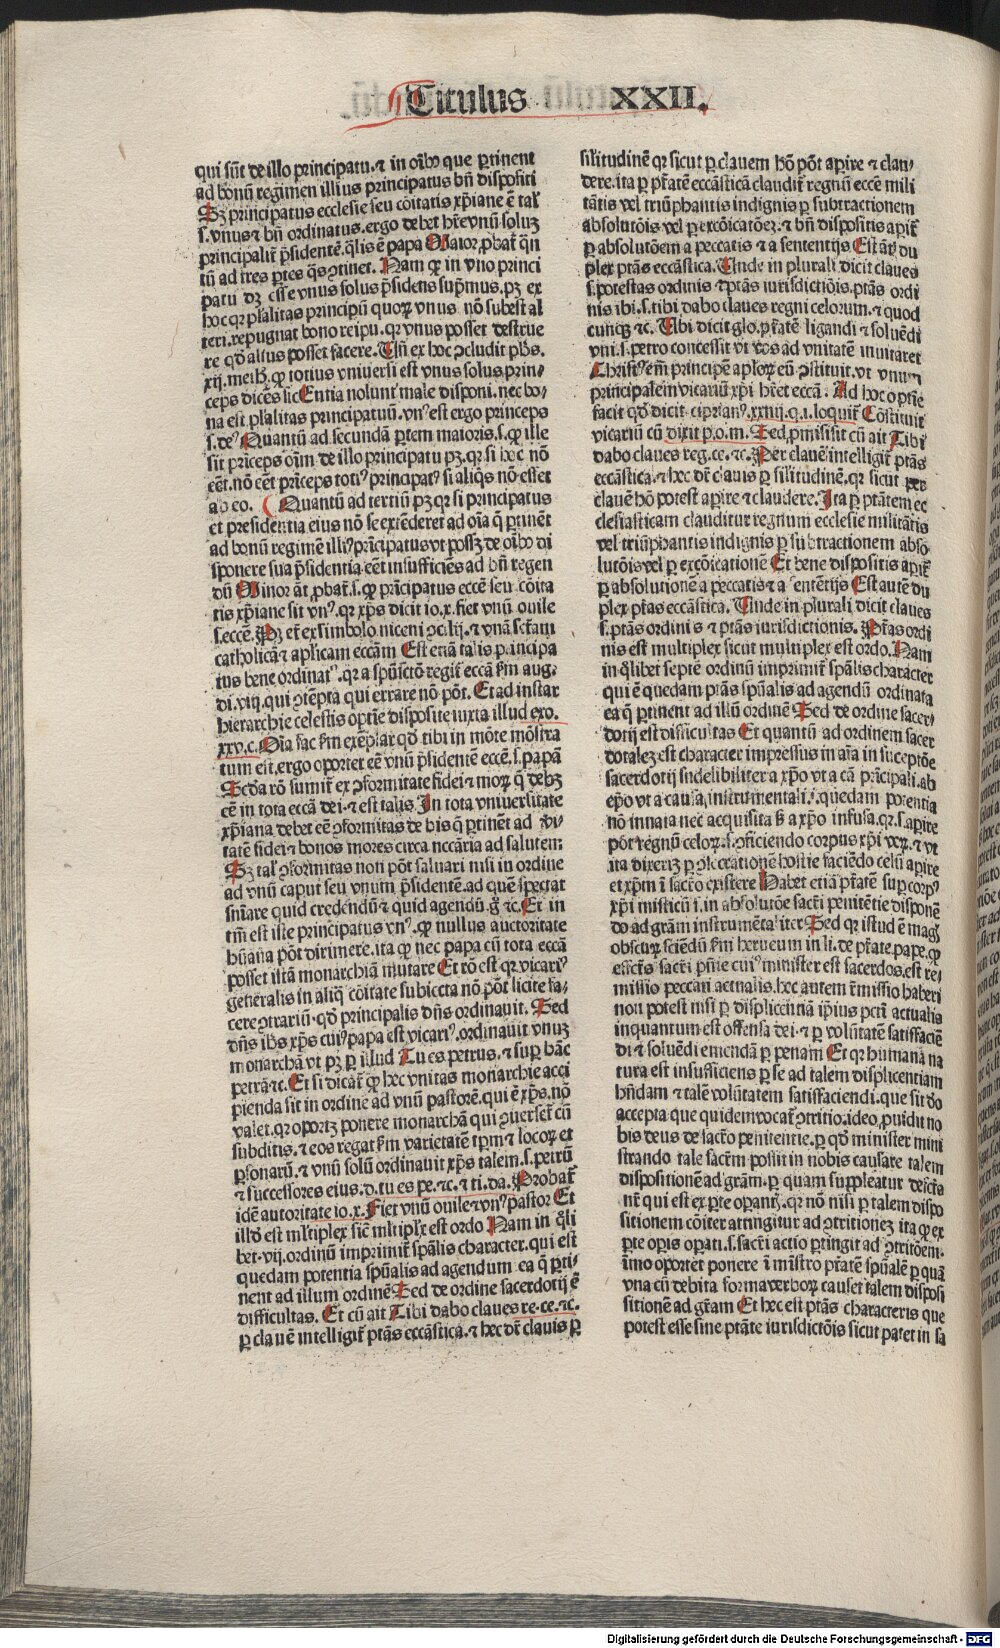 Titulus XXII.
qui sūt de illo principatu.⁊ in oībꝰ que ꝑtinent
ad bonū regimen illius principatus bn̄ dispositi
Sꝫ principatus ecclesie seu cōitatis xp̄iane ē tal'
s.vnus ⁊ bn̄ ordinatus.ergo debet hr̄e vnū soluꝫ
principalit̄ p̄sidentē.q̄lis ē papa Maior ꝓbat̄ q̄n
tū ad tres ꝑtes q̄s ꝯtinet. Nam ꝙ in vno princi
patu dꝫ esse vnus solus p̄sidens sup̄mus.pꝫ ex
hoc qꝛ pl'alitas principū quoꝝ vnus nō subest al
teri.repugnat bono reipu.qꝛ vnus posset destrue
re qd̓ alius posset facere.Un̄ ex hoc ꝯcludit ph̄s.
xij.meth̓.ꝙ totius vniuersi est vnus solus prin⸗
ceps dicēs sic Entia nolunt male disponi.nec bo⸗
na est pl'alitas principatuū.vnꝰ est ergo princeps
s.deꝰ Quantū ad secundā ꝑtem maioris.s.ꝙ ille
sit prīceps oīm de illo principatu pꝫ.qꝛ si hoc nō
eēt.nō eēt prīceps totiꝰ principatꝰ si aliq̄s nō esset
ab eo. Quantū ad tertiū pꝫ qꝛ si principatus
et presidentia eius nō se extēderet ad oīa q̄ ꝑtinēt
ad bonū regimē illiꝰ prīcipatus vt possꝫ de oībꝰ di
sponere sua p̄sidentia eēt insufficiēs ad bn̄ regen
dū Minor āt ꝓbat̄.s.ꝙ prīcipatus eccē seu cōita
tis xp̄iane sit vnꝰ.qꝛ xp̄s dicit io.x.fiet vnū ouile
s.eccē.Pꝫ et̄ ex simbolo niceni ꝯcilij.⁊ vnā sc̄tam
catholicā ⁊ apl'icam eccl'am Est etiā talis principa
tus bene ordinatꝰ.qꝛ a spūsctō regit̄ eccā scd̓m aug.
di.viij.qui ꝯtēpta qui errare nō pōt. Et ad instar
hierarchie celestis optīe disposite iuxta illud exo.
xxv.c.Oīa fac scd̓m exēplar qd̓ tibi in mōte mōstra
tum est.ergo oportet eē vnū p̄sidentē eccē.s.papā
Scd̓a rō sumit̄ ex ꝯformitate fidei ⁊ morū q̄ debꝫ
eē in tota eccā dei.⁊ est talis.In tota vniuersitate
xp̄iana debet eē ꝯformitas de his q̄ ꝑtinēt ad vi⸗
tatē fidei ⁊ bonos mores circa nccāria ad salutem
Sꝫ tal' ꝯformitas non pōt saluari nisi in ordine
ad vnū caput seu vnum p̄sidentē.ad quē spectat
sn̄iare quid credendū ⁊ quid agendū.g̊ ⁊c.Et in
tm̄ est iste principatus vnꝰ.ꝙ nullus auctoritate
hūana pōt dirimere.ita ꝙ nec papa cū tota eccā
posset istā monarchiā mutare Et rō est qꝛ vicariꝰ
generalis in aliq̄ cōitate subiecta nō pōt licite fa⸗
cere ꝯtrariū.qd̓ principalis dn̄s ordinauit. Sed
dn̄s ihs xp̄s cuiꝰ papa est vicariꝰ.ordinauit vnuꝫ
monarchā vt pꝫ ꝑ illud Tu es petrus.⁊ suꝑ hāc
petrā ⁊c.Et si dicat̄ ꝙ hec vnitas monarchie acci
pienda sit in ordine ad vnū pastorē.qui ē xp̄s.nō
valet.qꝛ oportꝫ ponere monarchā qui ꝯuerset̄ cū
subditis.⁊ eos regat scd̓m varietatē tp̄m ⁊ locoꝝ et
ꝑsonarū.⁊ vnū solū ordinauit xp̄s talem.s.petrū
⁊ successores eius.d.tu es pe.⁊c.⁊ ti.da. Probat̄
idē autoritate io.x.Fiet vnū ouile ⁊ vnꝰ pastor Et
illd̓ est ml̓tiplex sic̄ ml̓tipl̓x est ordo Nam in q̄li
bet.vij.ordinū imprimit̄ spālis character.qui est
quedam potentia spūalis ad agendum ea q̄ ꝑti⸗
nent ad illum ordinē Sed de ordine sacerdotij ē
difficultas. Et cū ait Tibi dabo claues re.ce.⁊c.
ꝑ clauē intelligit̄ ptās eccāstica.⁊ hec dr̄ clauis ꝑ
silitudinē qꝛ sicut ꝑ clauem hō pōt aperire ⁊ clau⸗
dere.ita ꝑ ptātem eccāsticā claudit̄ regnū eccē mili
tātis vel triūphantis indignis ꝑ subtractionem
absolutōis vel ꝑ excōicatōeꝫ.⁊ bn̄ dispositis aꝑit̄
ꝑ absolutōem a peccatis ⁊ a sententijs Est āt du
plex ptās eccāstica.Unde in plurali dicit claues
s.potestas ordinis ⁊ ptās iurisdictiōis.ptās ordi
nis ibi.s.tibi dabo claues regni celorum.⁊ quod
cunqꝫ ⁊c. Ubi dicit glo.ptātē ligandi ⁊ soluēdi
vni.s.petro concessit vt nos ad vnitatē inuitaret
Christꝰ em̄ principē apl'oꝝ eū ꝯstituit.vt vnum
principalem vicariū xp̄i hr̄et eccā. Ad hoc optīe
facit qd̓ dicit ciprianꝰ.xxiiij.q.i.loquit̄ Cōstituit
vicariū cū dixit p.o.m.Sed p̄misisit cū ait Tibi
dabo claues reg.ce.⁊c. Per clauē intelligit̄ ptās
eccāstica.⁊ hec dr̄ clauis ꝑ silitudinē.qꝛ sicut per
clauē hō potest aꝑire ⁊ claudere.Ita ꝑ ptātem ec
clesiasticam clauditur regnum ecclesie militātis
vel triūphantis indignis ꝑ subtractionem abso
lutōis vel ꝑ excōicationē Et bene dispositis aꝑit̄
ꝑ absolutionē a peccatis ⁊ a sententijs Est autē du
plex ptās eccāstica. Unde in plurali dicit claues
s.ptās ordinis ⁊ ptās iurisdictionis. Ptās ordi
nis est multiplex sicut multiplex est ordo.Nam
in q̄libet septē ordinū imprimit̄ spālis character
qui ē quedam ptās spūalis ad agendū ordinata
ea q̄ ꝑtinent ad illū ordinē Sed de ordine sacer⸗
dotij est difficultas Et quantū ad ordinem sacer
dotaleꝫ est character impressus in aīa in suceptōe
sacerdotij indelibiliter a xp̄o vt a cā prīcipali.ab
ep̄o vt a causa instrumentali.⁊ quedam potentia
nō innata nec acquisita s̄ a xp̄o infusa.qꝛ.s.aꝑire
pōt regnū celoꝝ.s.ꝯficiendo corpus xp̄i veꝝ.⁊ vt
ita dixeriꝫ ꝑ ꝯsecrationē hostie faciēdo celū aꝑire
et xp̄m ī sacr̄o existere Habet etiā ptātē suꝑ corpꝰ
xp̄i misticū s.in absolutōe sacrī penitētie disponē
do ad gr̄am instrumētaliter Sed qꝛ istud ē magꝭ
obscuꝝ sciēdū scd̓m herueum in li.de ptāte.pape.ꝙ
effectꝰ sacrī pn̄ie cuiꝰ minister est sacerdos.est re⸗
missio peccati actualis.hec autem r̄missio haberi
non potest nisi ꝑ displicentiā ip̄ius pctī actualis
inquantum est offensa dei.⁊ ꝑ volūtatē satisfaciē
di ⁊ soluēdi emendā ꝑ penam Et qꝛ humana na
tura est insufficiens ꝑ se ad talem displicentiam
hn̄dam ⁊ talē volūtatem satisfaciendi.que sit d̓o
accepta que quidem vocat̄ ꝯtritio.ideo ꝓuidit no
bis deus de sacr̄o penitentie.ꝑ qd̓ minister mini
strando tale sacrm̄ possit in nobis causare talem
dispositionē ad gr̄am.ꝑ quam suppleatur defctꝰ
nr̄ qui est ex ꝑte oꝑantꝭ.qꝛ nō nisi ꝑ talem dispo
sitionem cōiter attingitur ad ꝯtritioneꝫ ita ꝙ ex
ꝑte oꝑis oꝑati.s.sacrī actio ꝑtingit ad ꝯtritōem.
īmo oportet ponere ī mīstro ptātē spūalē ꝑ quā
vna cū debita forma verboꝝ causet talem disposi
sitionē ad gr̄am Et hec est ptās characteris que
potest esse sine ptāte iurisdictōis sicut patet in sa
Digitalisierung gefördert durch die Deutsche Forschungsgemeinschaft - DFG